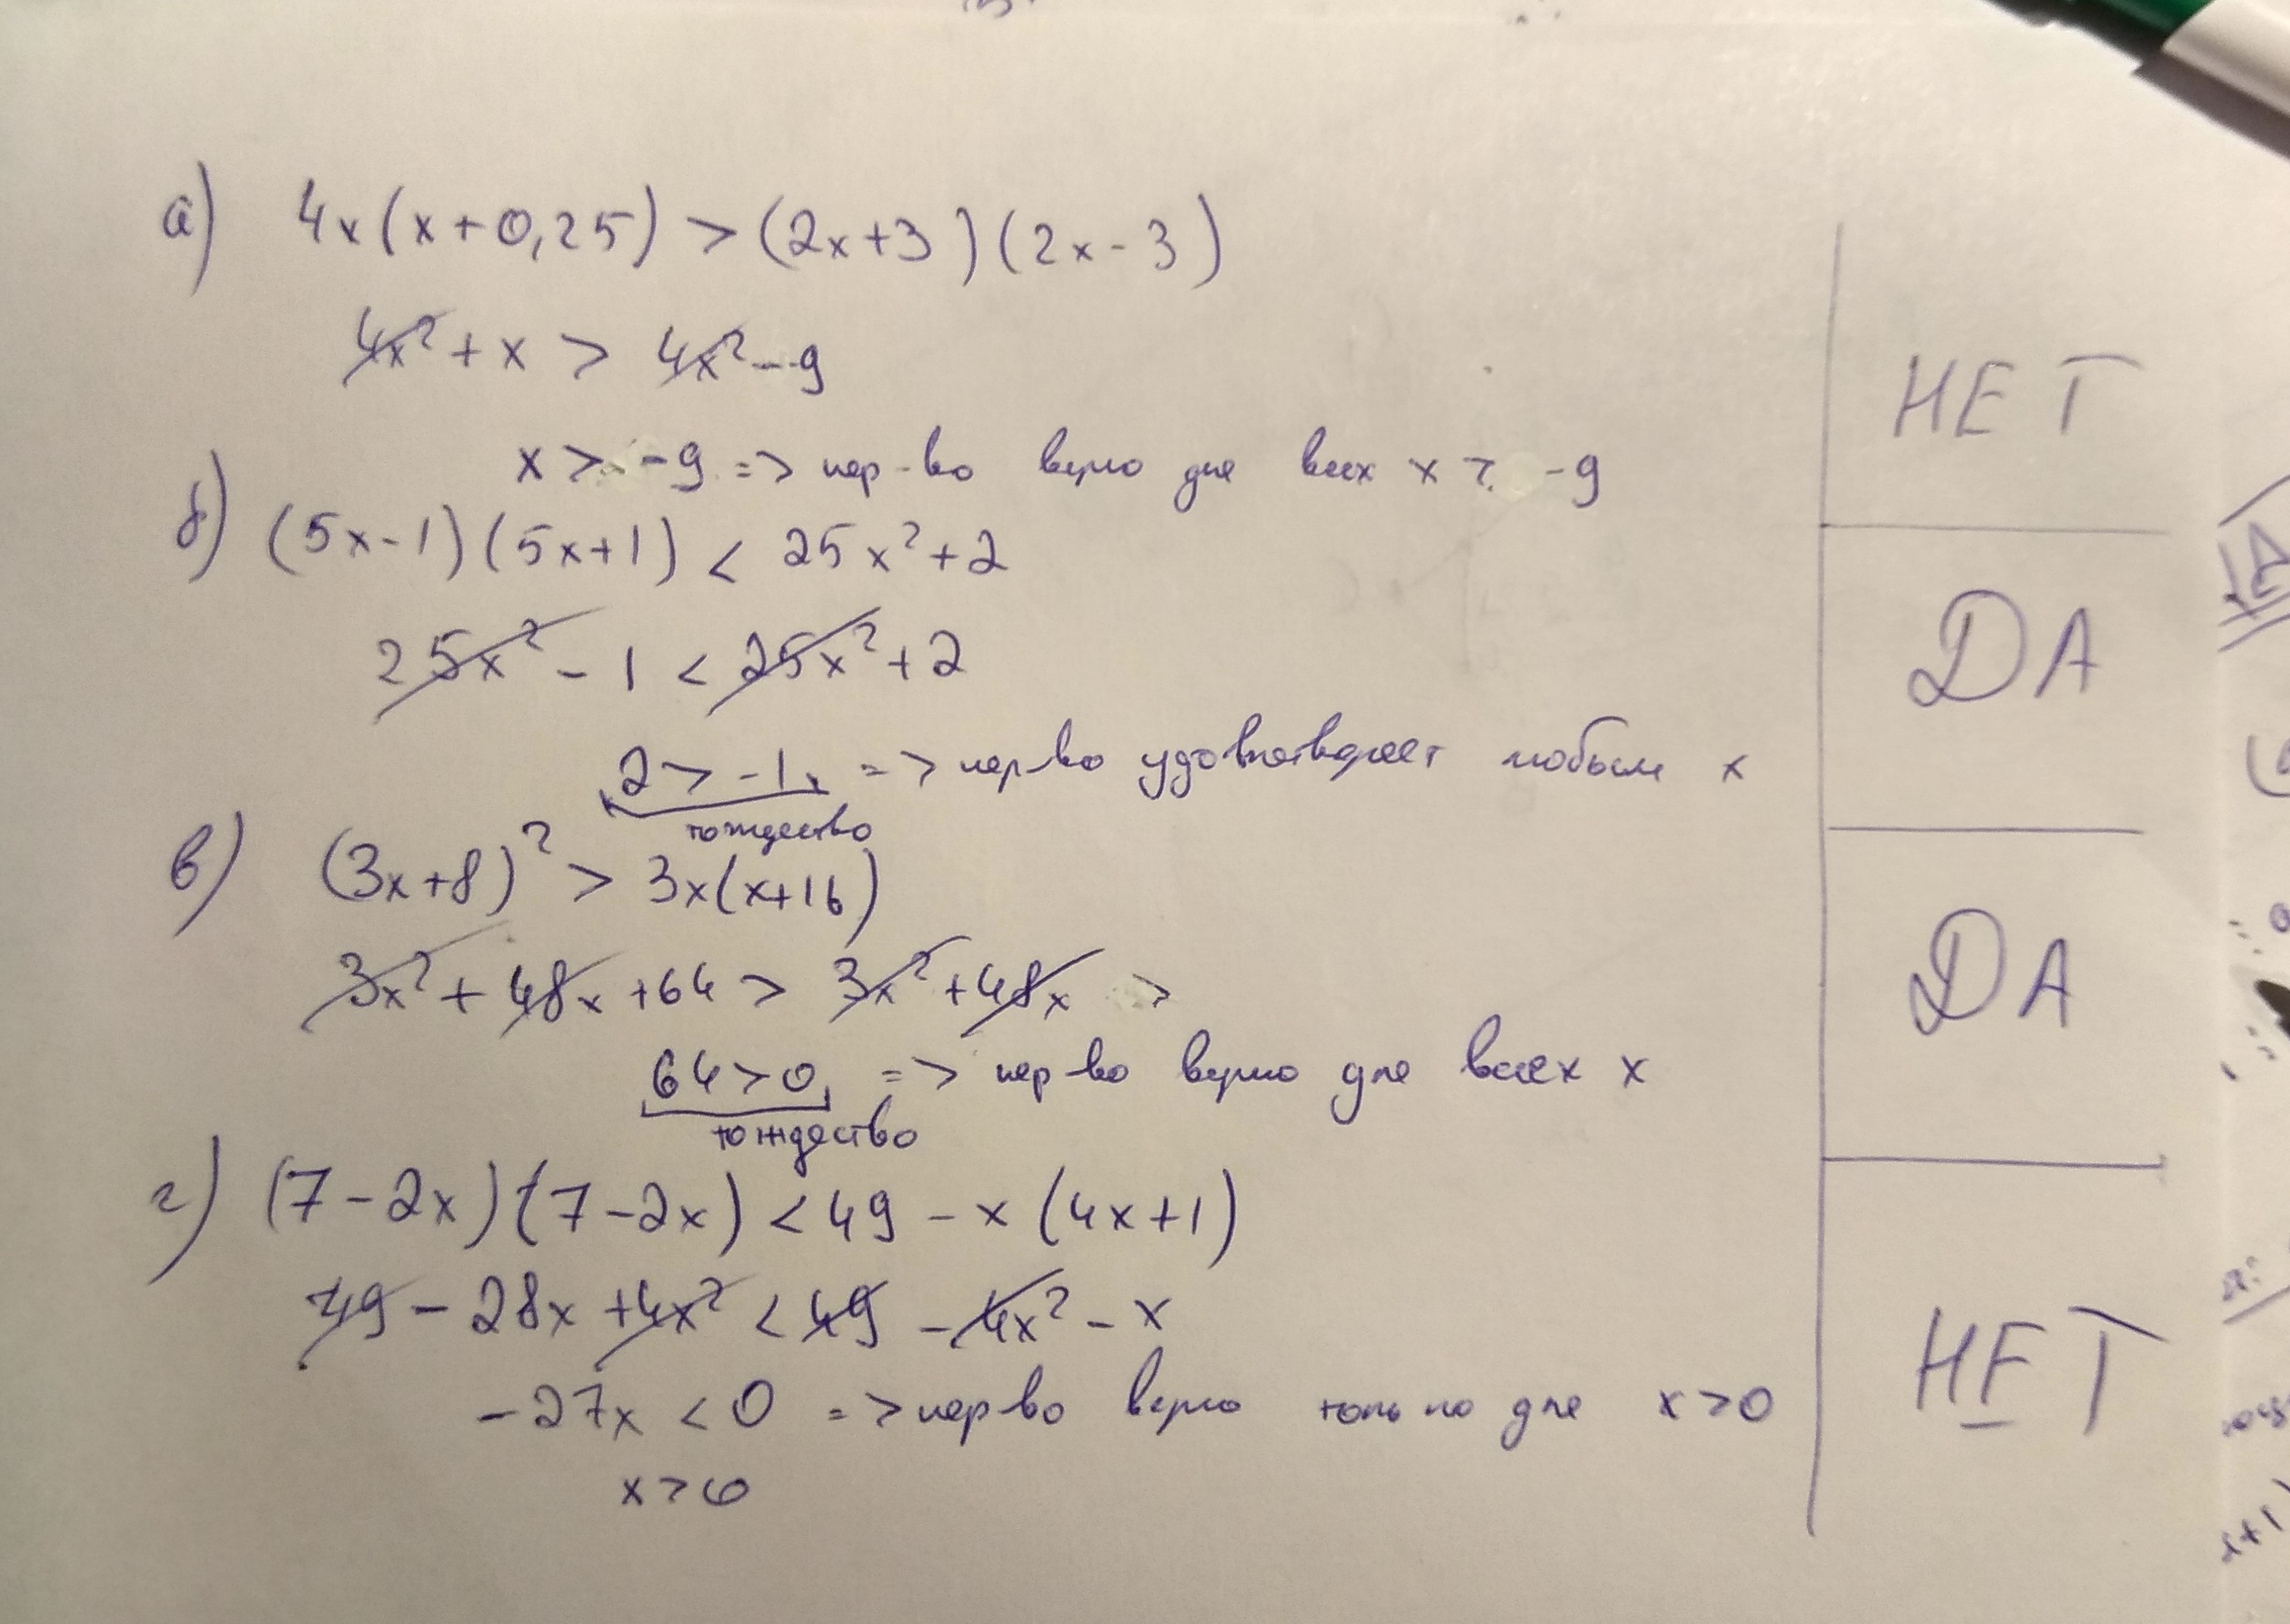 а) 4x(x+0,25) > (2x+3)(2x-3)
4x² + x > 4x² - 9
x > -9 => нер-во верно для всех x > -9
НЕТ
б) (5x-1)(5x+1) < 25x²+2
25x² - 1 < 25x²+2
2 > -1 => нер-во удовлетворяет любым x
тождество
DA
в) (3x+8)² > 3x(x+16)
3x² + 48x + 64 > 3x² + 48x >
64 > 0 => нер-во верно для всех x
тождество
DA
г) (7-2x)(7-2x) < 49 - x(4x+1)
49 - 28x + 4x² < 49 - 4x² - x
-27x < 0 => нер-во верно только для x > 0
x > 0
НЕТ